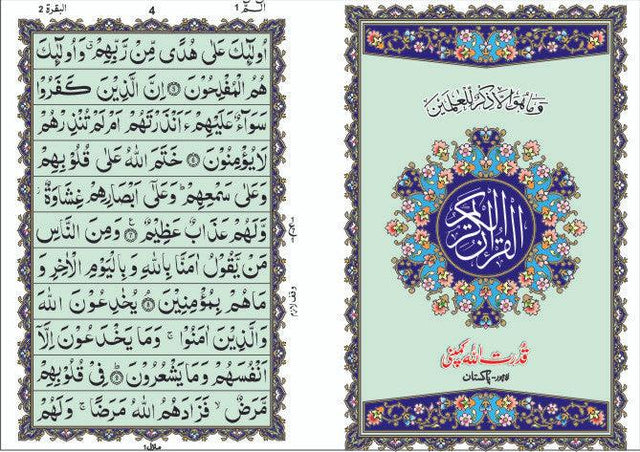 وَمَا هُوَ اِلَّا ذِكْرٌ لِّلْعٰلَمِيْنَ
القرآن الكريم
قدرت اللہ کمپنی
لاہور-پاکستان
الٓمّٓ 1
4
البقرة 2
اُولٰٓئِكَ عَلٰى هُدًى مِّنْ رَّبِّهِمْ ۗ وَاُولٰٓئِكَ
هُمُ الْمُفْلِحُوْنَ ۝ اِنَّ الَّذِيْنَ كَفَرُوْا
سَوَآءٌ عَلَيْهِمْ ءَاَنْذَرْتَهُمْ اَمْ لَمْ تُنْذِرْهُمْ
لَا يُؤْمِنُوْنَ ۝ خَتَمَ اللّٰهُ عَلٰى قُلُوْبِهِمْ
وَعَلٰى سَمْعِهِمْ ؕ وَعَلٰٓى اَبْصَارِهِمْ غِشَاوَةٌ ؗ
وَّلَهُمْ عَذَابٌ عَظِيْمٌ ۝ وَمِنَ النَّاسِ
مَنْ يَّقُوْلُ اٰمَنَّا بِاللّٰهِ وَبِالْيَوْمِ الْاٰخِرِ وَ
مَا هُمْ بِمُؤْمِنِيْنَ ۝ يُخٰدِعُوْنَ اللّٰهَ
وَالَّذِيْنَ اٰمَنُوْا ۚ وَمَا يَخْدَعُوْنَ اِلَّآ
اَنْفُسَهُمْ وَمَا يَشْعُرُوْنَ ۝ فِيْ قُلُوْبِهِمْ
مَّرَضٌ ۙ فَزَادَهُمُ اللّٰهُ مَرَضًا ۚ وَلَهُمْ
وقف لازم
منزل ١